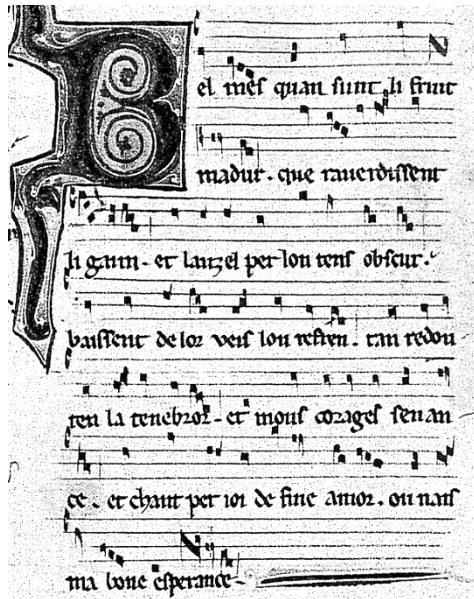 Bel mes quan sunt li fruit
madur. que raverdissent
li gain. et lauzel per lou tens obscur.
baissent de lor veis lou refren. tan redou
ten la tenebror. et mous corages senan
ce. et chant per ioi de fine amor. ou nais
ma bone esperance.